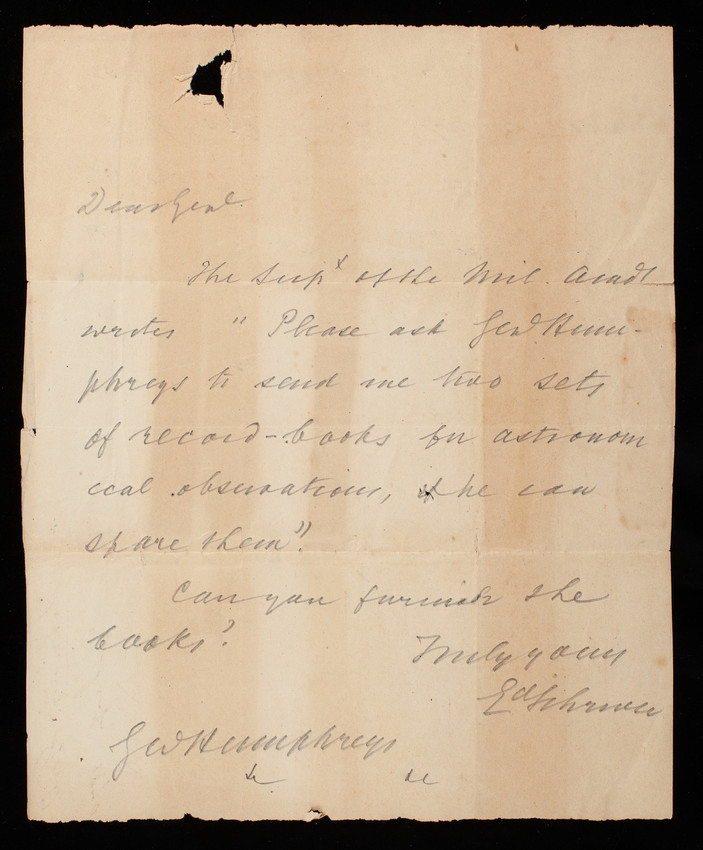 Dear Genl.
The Supt of the Mil. Acadl
writes " Please ask Genl Hum-
phreys to send me two sets
of record-books for astronom
ical observations, if he can
spare them".
Can you furnish the
books?
Truly yours
Ed Schriver
Genl Humphreys
&c &c